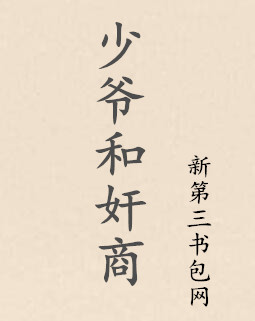 少爷和奸商
新第三书包网